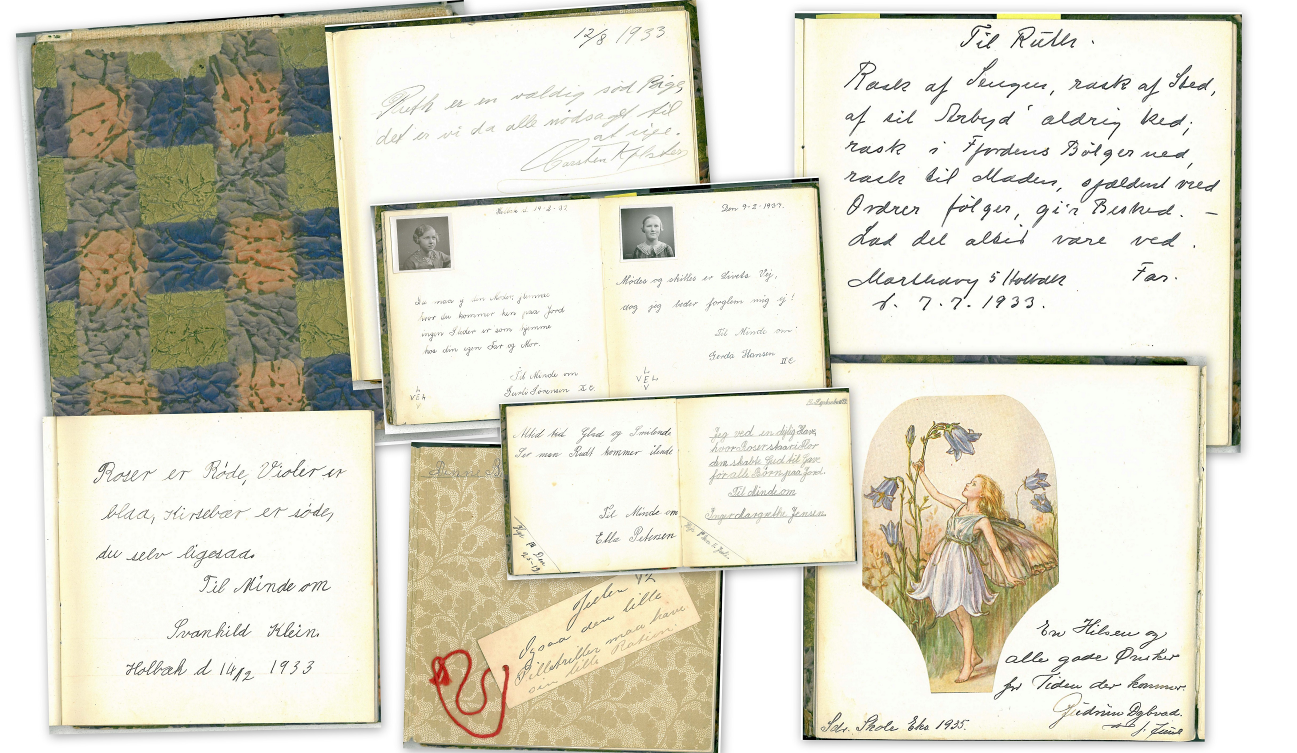 12/8 1933
Ruth er en vældig sød Pige
det er vi da alle nødsaget til
at sige.
Til Ruth.
Rask af Sengen, rask af Sted,
af til Arbejd' aldrig ked;
rask i Fjordens Bølger ned,
rask til Maden, sjældent vred
Ordrer følger, gi'r Besked. —
Lad det altid være ved.
Far.
5 Holbæk
d. 7.7.1933.
19-2-37
Du maa
hvor du kommer hen paa Jord
ingen Steder er som hjemme
hos din egen Far og Mor.
Til Minde om
Sørensen
Den 9-2-1937.
Mødes og skilles er Livets Vej,
dog jeg beder forglem mig ej!
Til Minde om
Gerda Hansen
II C
L
V E L
V
Altid
Glad og Smilende
Ser man Rudt kommer ilende
Til Minde om
Else Petersen
Jeg ved en dejlig Have,
hvor Roser staar i Flor
den skabte Gud til Gave
for alle Børn paa Jord.
Til Minde om
Inger Margrethe Jensen.
Roser er Røde, Violer er
blaa, Kirsebær er søde,
du selv ligesaa.
Til Minde om
Svanhild Klein.
Holbæk d 14/12 1933
Ogsaa den lille
Pilletriller maa have
sin lille
En Hilsen og
alle gode Ønsker
for Tiden der kommer.
Gudrun Dybvad.
Sdr. Skole Eks 1935.